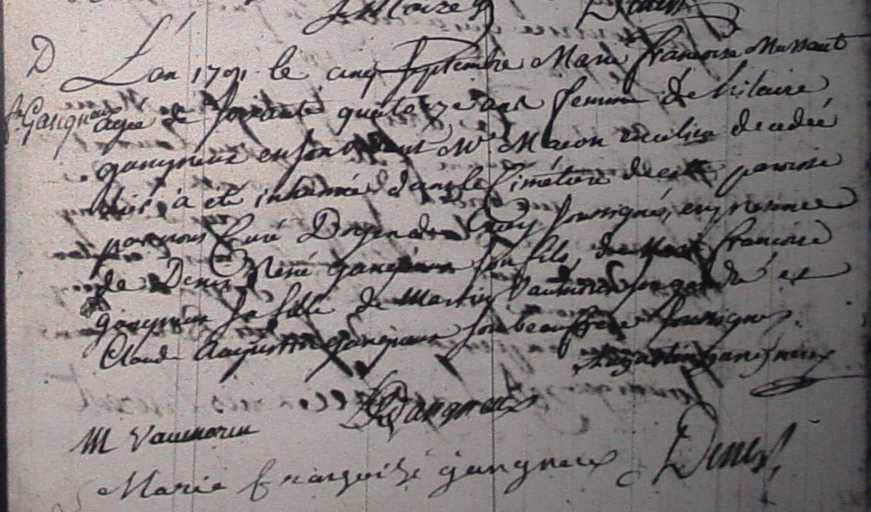 D
fe. Gangneux
L'an 1791 le cinq Septembre Marie francoise Mussault
agée de soixante quatorze ans femme de hilaire
gangneux en son vivant Md Macon
à eté inhumée dans le Cimetiere de cette paroisse
par nous Curé Doyen de soussigné, en presence
de Denis René gangneux son fils, de Marie francoise
gangneux sa fille de Martin Vaumorin son gendre et
Claude Augustin gangneux son beau frere soussignés.
Augustin gangneux
Gangneux
M Vaumorin
Marie françoise gangneux